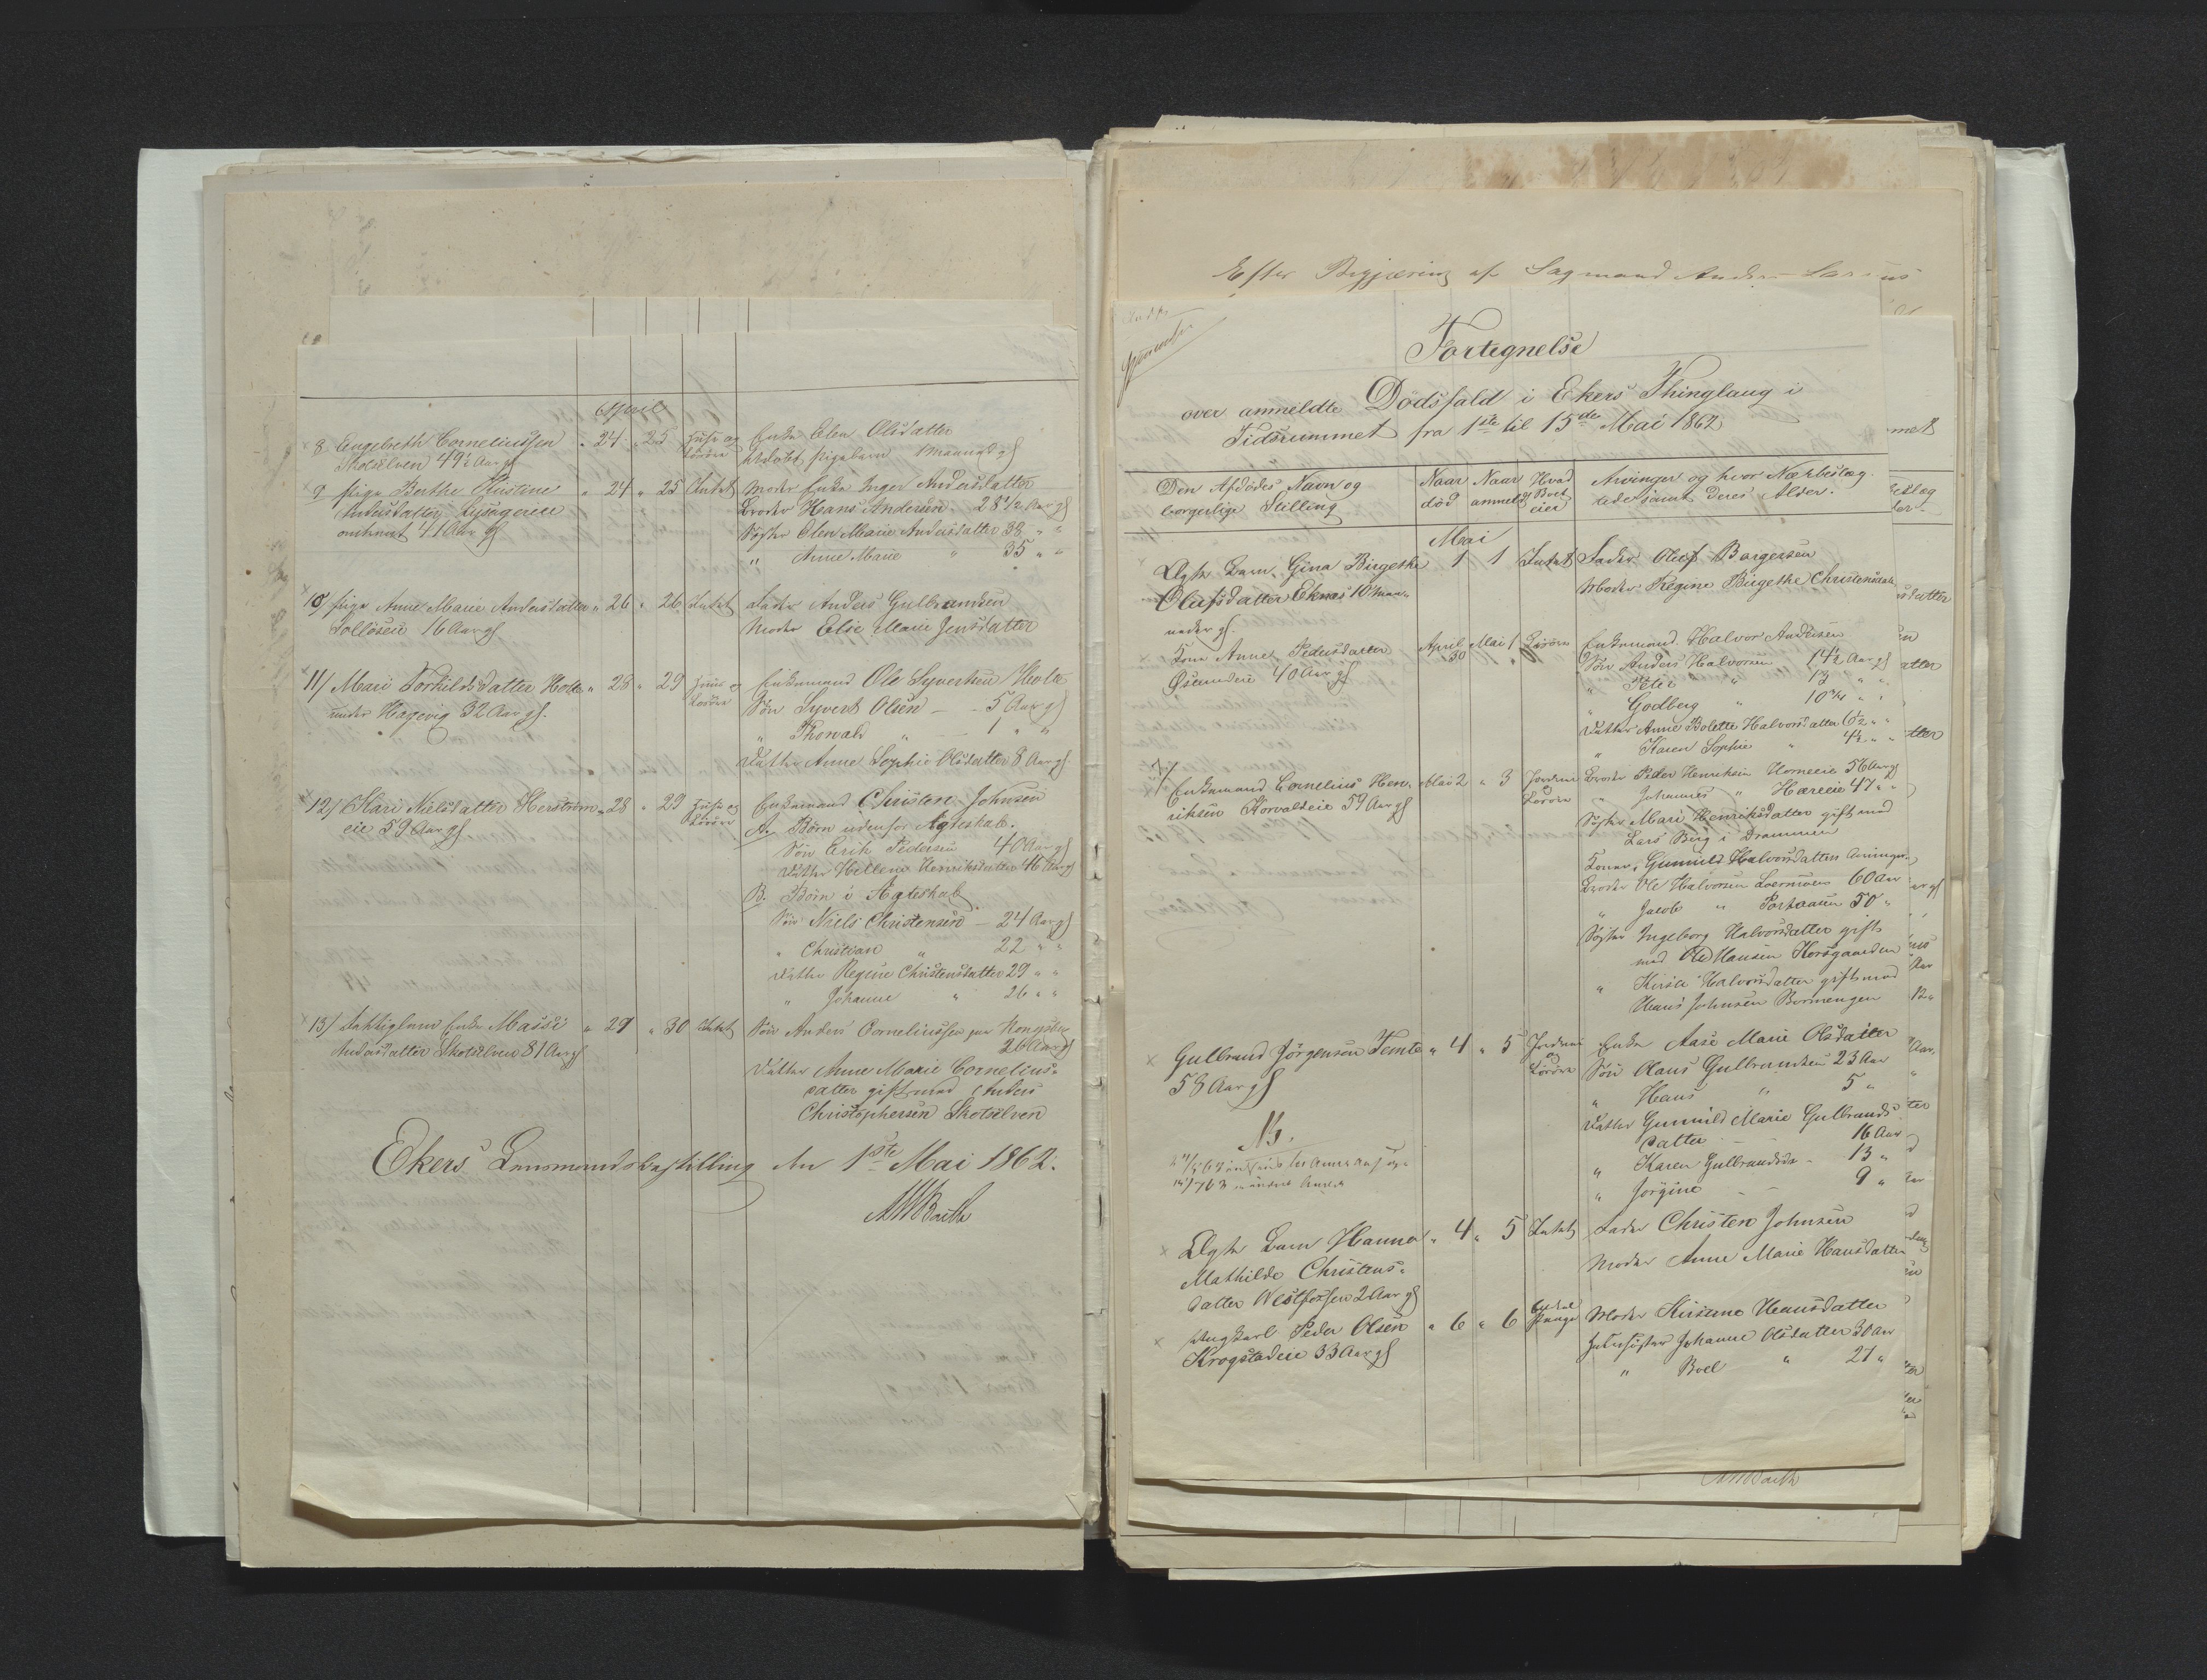 April
8 Engebreth Corneliussen " 24 " 25 Huse og Enke Elen Olsdatter
Skotselven 49½ Aar gl Løsøre udøbt Pigebarn 1 Maaned gl
9 Pige Berthe Kristine " 24 " 25 Intet Moder Enke Inger Andersdatter
Andersdatter Broder Hans Andersen 28½ Aar gl
omtrent 41 Aar gl Søster Elen Marie Andersdatter 38 " "
" Anne Marie " 35 " "
10/ Pige Anne Marie Andersdatter " 26 " 26 Intet Fader Anders Gulbrandsen
16 Aar gl Moder Else Marie Jensdatter
11/ Mari Torkildsdatter Holte " 28 " 29 Huus og Enkemand Ole Syvertsen Holte
under Hagevig 32 Aar gl. Løsøre Søn Syvert Olsen - - 5 Aar gl
" Thorvald " - 1 " "
Datter Anne Sophie Olsdatter 8 Aar gl.
12/ Kari Nielsdatter Herstrøm- " 28 " 29 Huse og Enkemand Christen Johnsen
eie 59 Aar gl Løsøre A. Børn udenfor Ægteskab.
Søn Erik Pedersen 40 Aar gl
Datter Hellene Henriksdatter 46 Aar gl
B. Børn i Ægteskab
Søn Niels Christensen - 24 Aar gl
" Christian " 22 " "
Datter Regine Christensdatter 29 " "
" Johanne " 26 " "
13/ Fattiglem Enke Massi " 29 " 30 Intet Søn Anders Corneliussen paa Kongsberg
Andersdatter Skotselven 81 Aar gl 26 Aar gl
Datter Anne Marie Cornelius-
datter gift med Anders
Christophersen Skotselven
Ekers Lensmandsbestilling den 1ste Mai 1862.
Efter Begjæring af Sagmand Anders Larsens
Fortegnelse
over anmeldte Dödsfald i Ekers Thinglaug i
Tidsrummet fra 1ste til 15de Mai 1862
Den Afdödes Navn og Naar Naar Hvad Arvinger og hvor Nærbeslæg-
borgerlige Stilling död anmeldt Boet eier tede samt deres Alder.
Mai
Ægte Barn Gina Birgethe 1 1 Intet Fader Oluf Borgersen
Olufsdatter Eknes 10 Maa- Moder Regine Birgethe Christensdatter
neder gl.
Kone Anne Pedersdatter April 30 Mai 1 Løsøre Enkemand Halvor Andersen
40 Aar gl Søn Anders Halvorsen 14½ Aar gl
" Peter " 13 " "
" Godberg " 10¾ " "
Datter Anne Bolette Halvorsdatter 6½ " "
" Karen Sophie " 4½ " "
Enkemand Cornelius Hen- Mai 2 " 3 Jordeie Broder Peder Henriksen Horneeie 56 Aar gl
riksen Horvaldeie 59 Aar gl og Løsøre " Johannes " Hæreeie 47 " "
Søster Mari Henriksdatter gift med
Lars Berg i Drammen
Konen, Gunnild Halvorsdatters Arvinger
Broder Ole Halvorsen 60 Aar
" Jacob " 50 "
Søster Ingeborg Halvorsdatter gift
med Ole Hansen Korsgaarden
" Kirsti Halvorsdatter gift med
Hans Johnsen Bermengen
Gulbrand Jörgensen Temte " 4 " 5 Jordeie Enke Aase Marie Olsdatter
58 Aar gl og Løsøre Søn Olaus Gulbrandsen 23 Aar
" Hans " 5 "
Datter Gunnild Marie Gulbrands-
datter 16 Aar
" Karen Gulbrandsd. - 13 "
" Jörgine - - 9 "
NB.
Ægte Barn Hanna " 4 " 5 Intet Fader Christen Johnsen
Mathilde Christens- Moder Anne Marie Hansdatter
datter Westfossen 2 Aar gl
Ungkarl Peder Olsen " 6 " 6 Penge Moder Kirstine Hansdatter
Krogstadeie 33 Aar gl Johanne Olsdatter 30 Aar
" Boel " 27 "